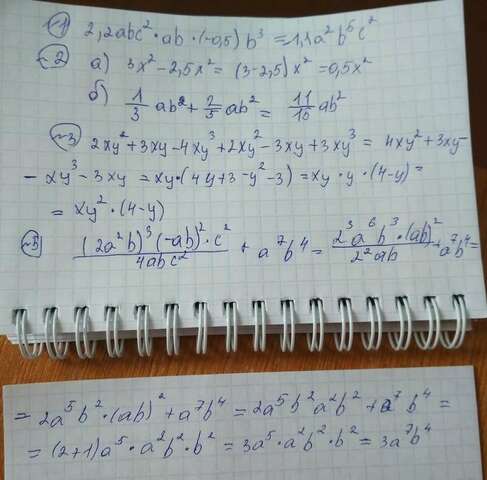 №1 2,2abc²·ab·(-0,5)b³ = -1,1a²b⁵c²
№2 а) 3x² - 2,5x² = (3-2,5)x² = 0,5x²
б) 1/3 ab² + 2/5 ab² = 11/15 ab²
№3 2xy² + 3xy - 4xy³ + 2xy² - 3xy + 3xy³ = 4xy² + 3xy -
- xy³ - 3xy = xy·(4y + 3 - y² - 3) = xy·y·(4-y) =
= xy²·(4-y)
№5 (2a²b)³(-ab)²·c² / 4abc² + a⁷b⁴ = 2³a⁶b³·(ab)² / 2²ab + a⁷b⁴ =
= 2a⁵b²·(ab)² + a⁷b⁴ = 2a⁵b²a²b² + a⁷b⁴ =
= (2+1)a⁵·a²b²·b² = 3a⁵·a²b²·b² = 3a⁷b⁴